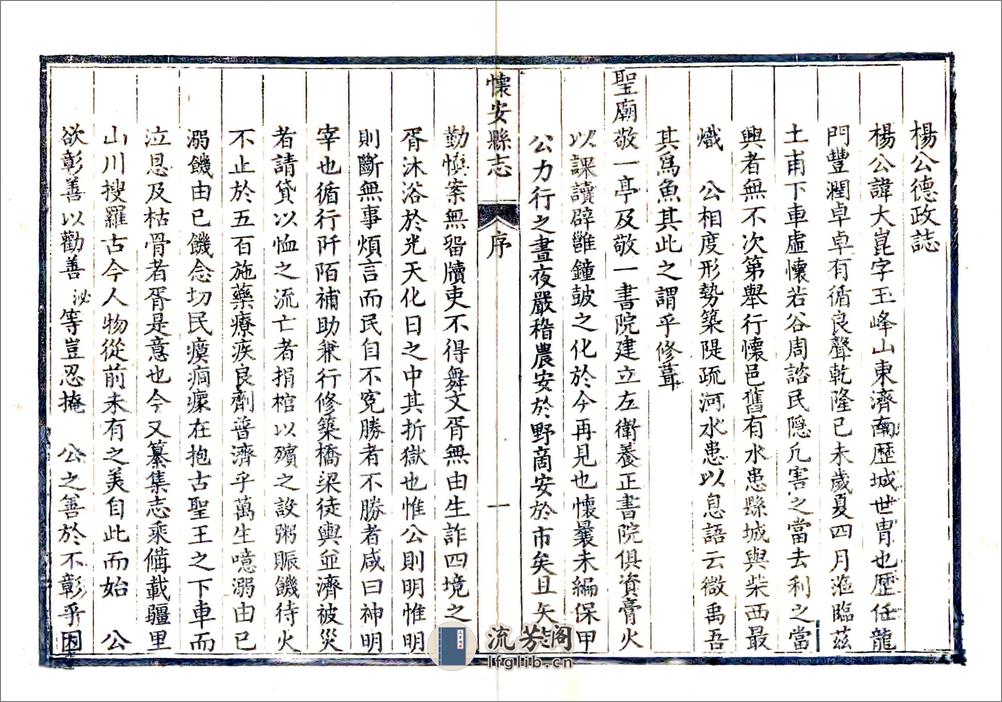 楊公德政誌
楊公諱大崑字玉峰山東濟南歷城世胄也歷任龍
門豐潤卓卓有循良聲乾隆己未歲夏四月涖臨茲
土甫下車虛懷若谷周諮民隱凢害之當去利之當
興者無不次第舉行懷邑舊有水患縣城與柴西最
熾　公相度形勢築隄疏河水患以息語云微禹吾
其為魚其此之謂乎修葺
聖廟敬一亭及敬一書院建立左衛養正書院俱資膏火
以課讀辟雝鐘皷之化於今再見也懷曩未編保甲
公力行之晝夜嚴稽農安於野商安於市矣且矢
懷安縣志　序　一
勤慎案無畱牘吏不得舞文胥無由生詐四境之
胥沐浴於光天化日之中其折獄也惟公則明惟明
則斷無事煩言而民自不冤勝者不勝者咸曰神明
宰也循行阡陌補助兼行修築橋梁徒輿並濟被災
者請貸以恤之流亡者捐棺以殯之設粥賑饑待火
不止於五百施藥療疾良劑普濟乎萬生噫溺由已
溺饑由已饑念切民瘼痌瘝在抱古聖王之下車而
泣恩及枯骨者胥是意也今又纂集志乘備載疆里
山川搜羅古今人物從前未有之美自此而始　公
欲彰善以勸善泌等豈忍掩　公之善於不彰乎因
流芳阁
lfglib.cn